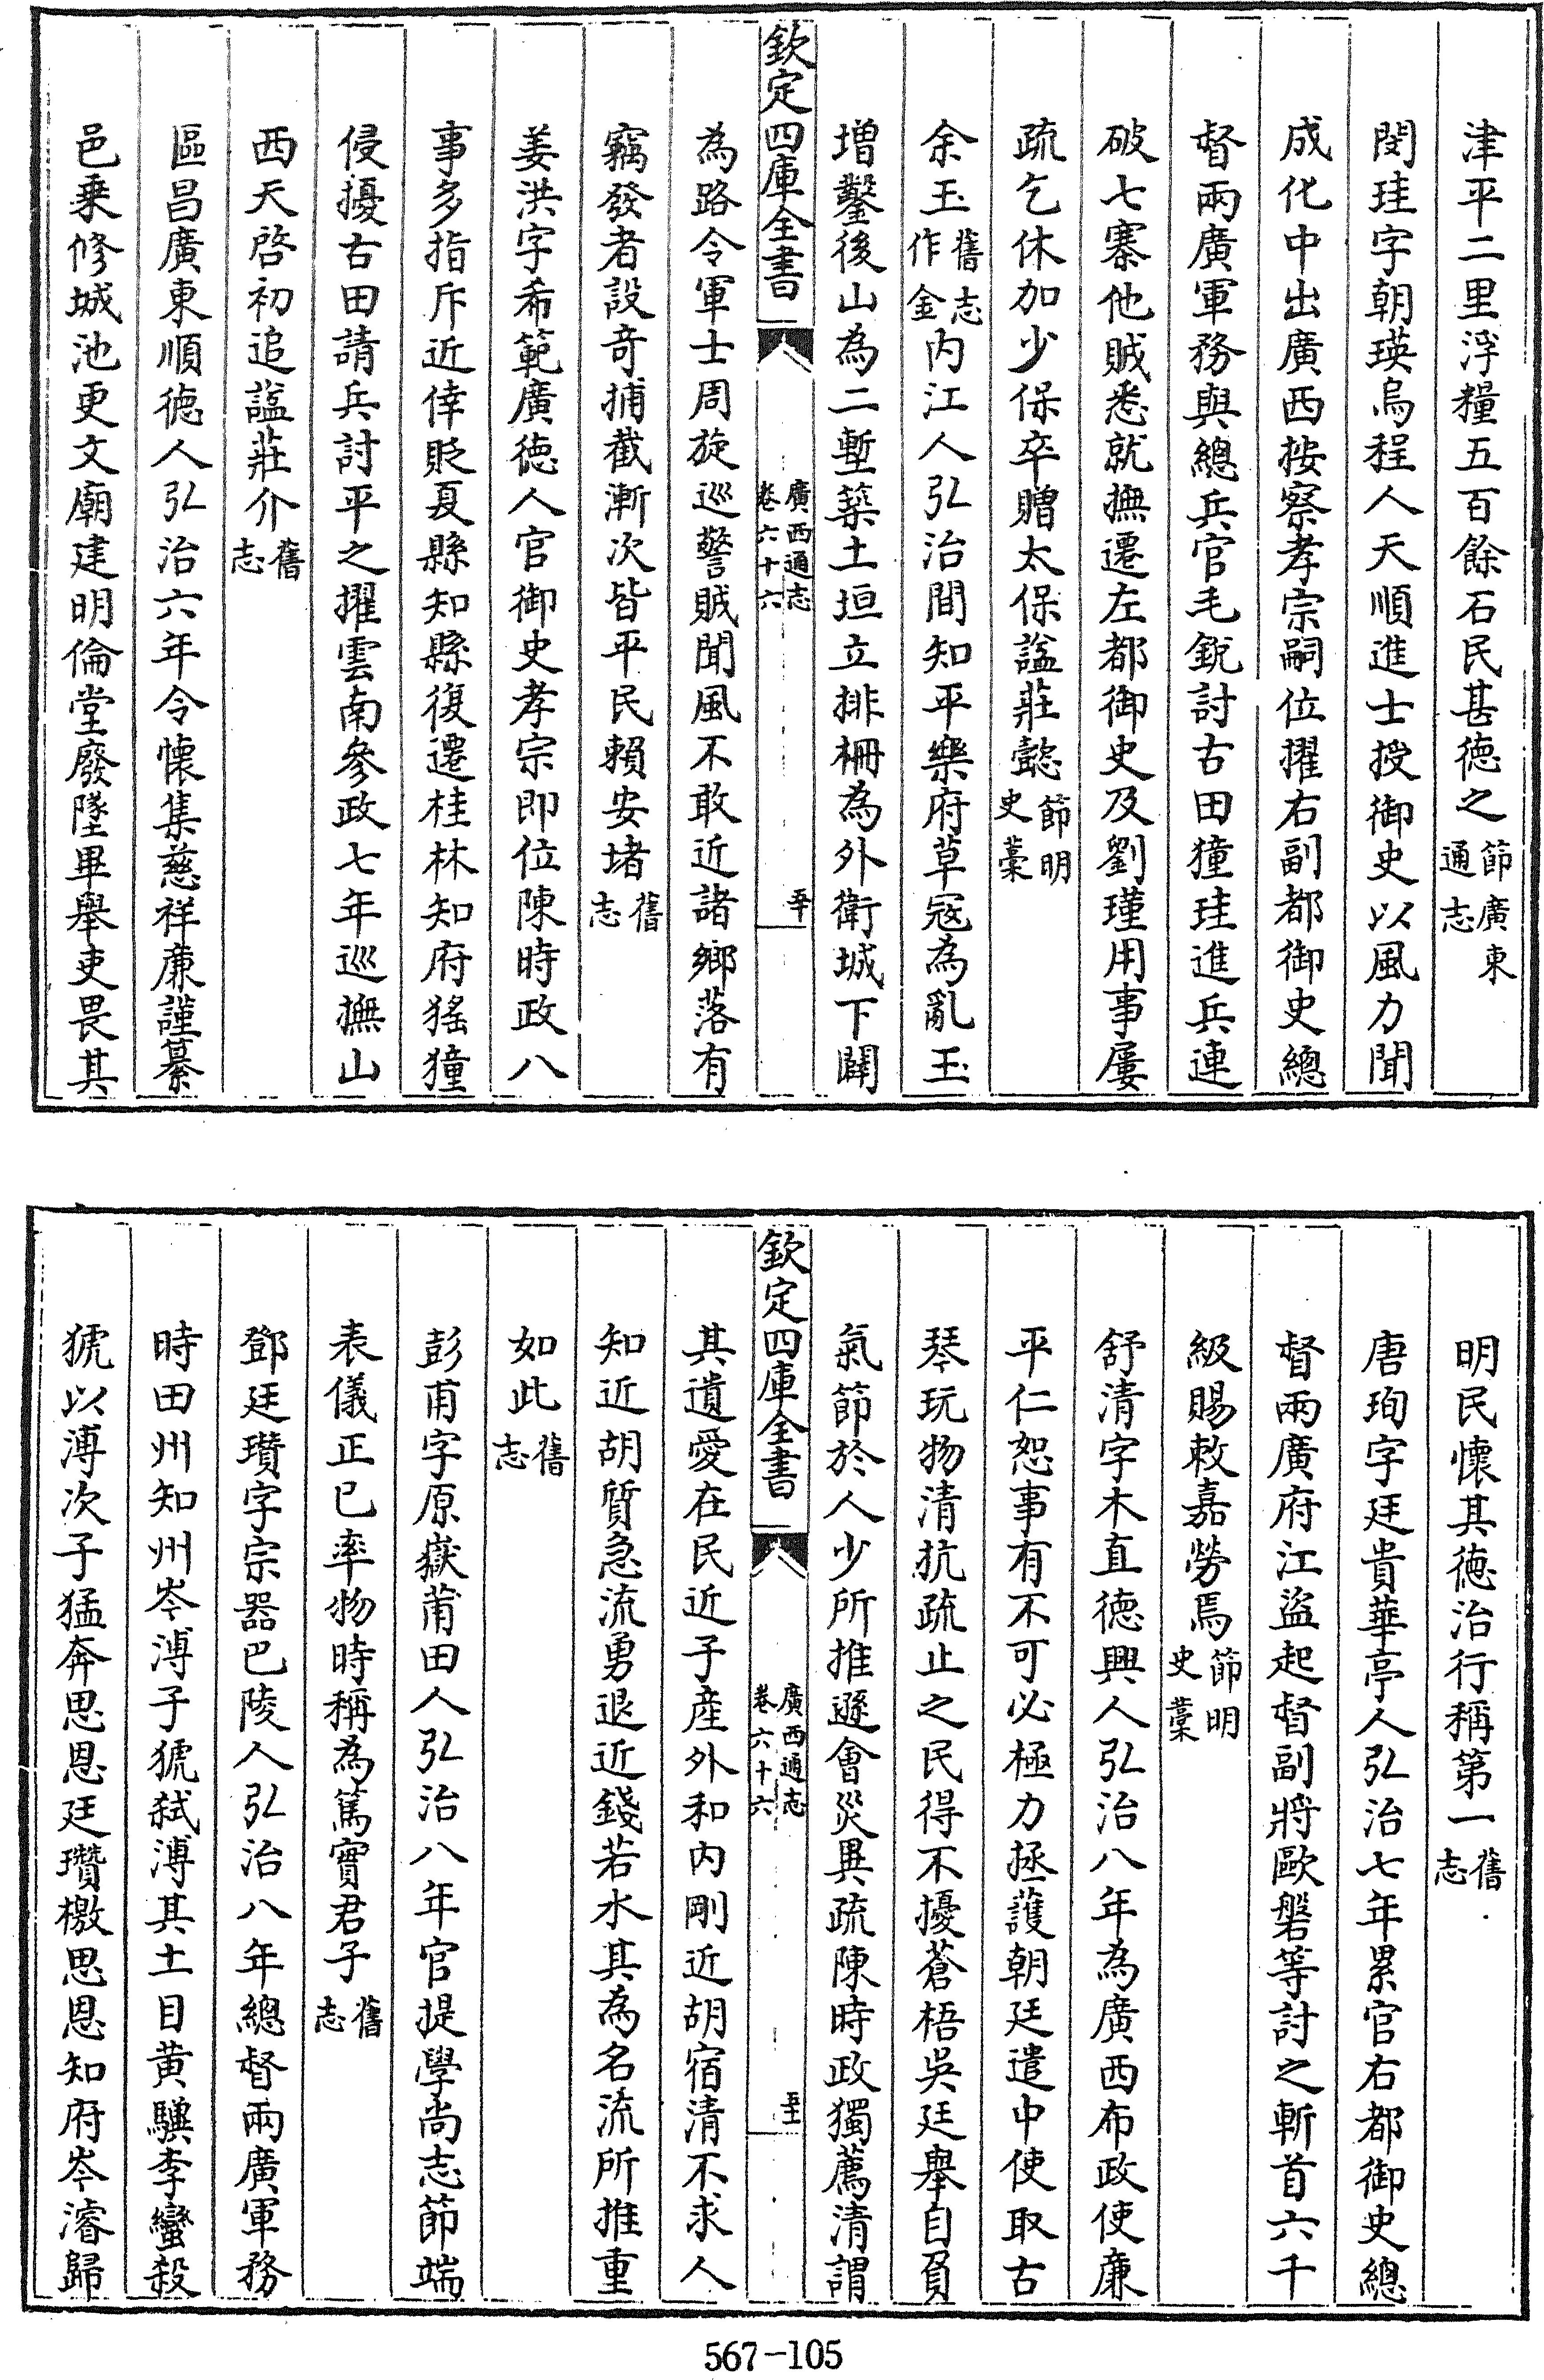 津平二里浮糧五百餘石民甚徳之節廣東通志
閔珪字朝瑛烏程人天順進士授御史以風力聞
成化中出廣西按察孝宗嗣位擢右副都御史總
督兩廣軍務與總兵官毛銳討古田獞珪進兵連
破七寨他賊悉就撫遷左都御史及劉瑾用事屢
疏乞休加少保卒贈太保諡莊懿節明史藁
余玉舊志作金内江人弘治間知平樂府草寇為亂玉
增鑿後山為二塹築土垣立排柵為外衛城下闢
欽定四庫全書
廣西通志卷六十六
五十
為路令軍士周旋巡警賊聞風不敢近諸鄉落有
竊發者設竒捕截漸次皆平民賴安堵舊志
姜洪字希範廣徳人官御史孝宗即位陳時政八
事多指斥近倖貶夏縣知縣復遷桂林知府猺獞
侵擾古田請兵討平之擢雲南參政七年巡撫山
西天啓初追諡莊介舊志
區昌廣東順徳人弘治六年令懷集慈祥亷謹纂
邑乗修城池更文廟建明倫堂廢墜畢舉吏畏其
明民懷其徳治行稱第一舊志
唐珣字廷貴華亭人弘治七年累官右都御史總
督兩廣府江盜起督副將歐磐等討之斬首六千
級賜敕嘉勞焉節明史藁
舒清字木直德興人弘治八年為廣西布政使亷
平仁恕事有不可必極力拯護朝廷遣中使取古
琴玩物清抗疏止之民得不擾蒼梧吳廷舉自負
氣節於人少所推遜會災異疏陳時政獨薦清謂
欽定四庫全書
廣西通志卷六十六
五十一
其遺愛在民近子産外和内剛近胡宿清不求人
知近胡質急流勇退近錢若水其為名流所推重
如此舊志
彭甫字原嶽莆田人弘治八年官提學尚志節端
表儀正已率物時稱為篤實君子舊志
鄧廷瓚字宗器巴陵人弘治八年總督兩廣軍務
時田州知州岑溥子猇弑溥其土目黄驥李蠻殺
猇以溥次子猛奔思恩廷瓚檄思恩知府岑濬歸
567-105